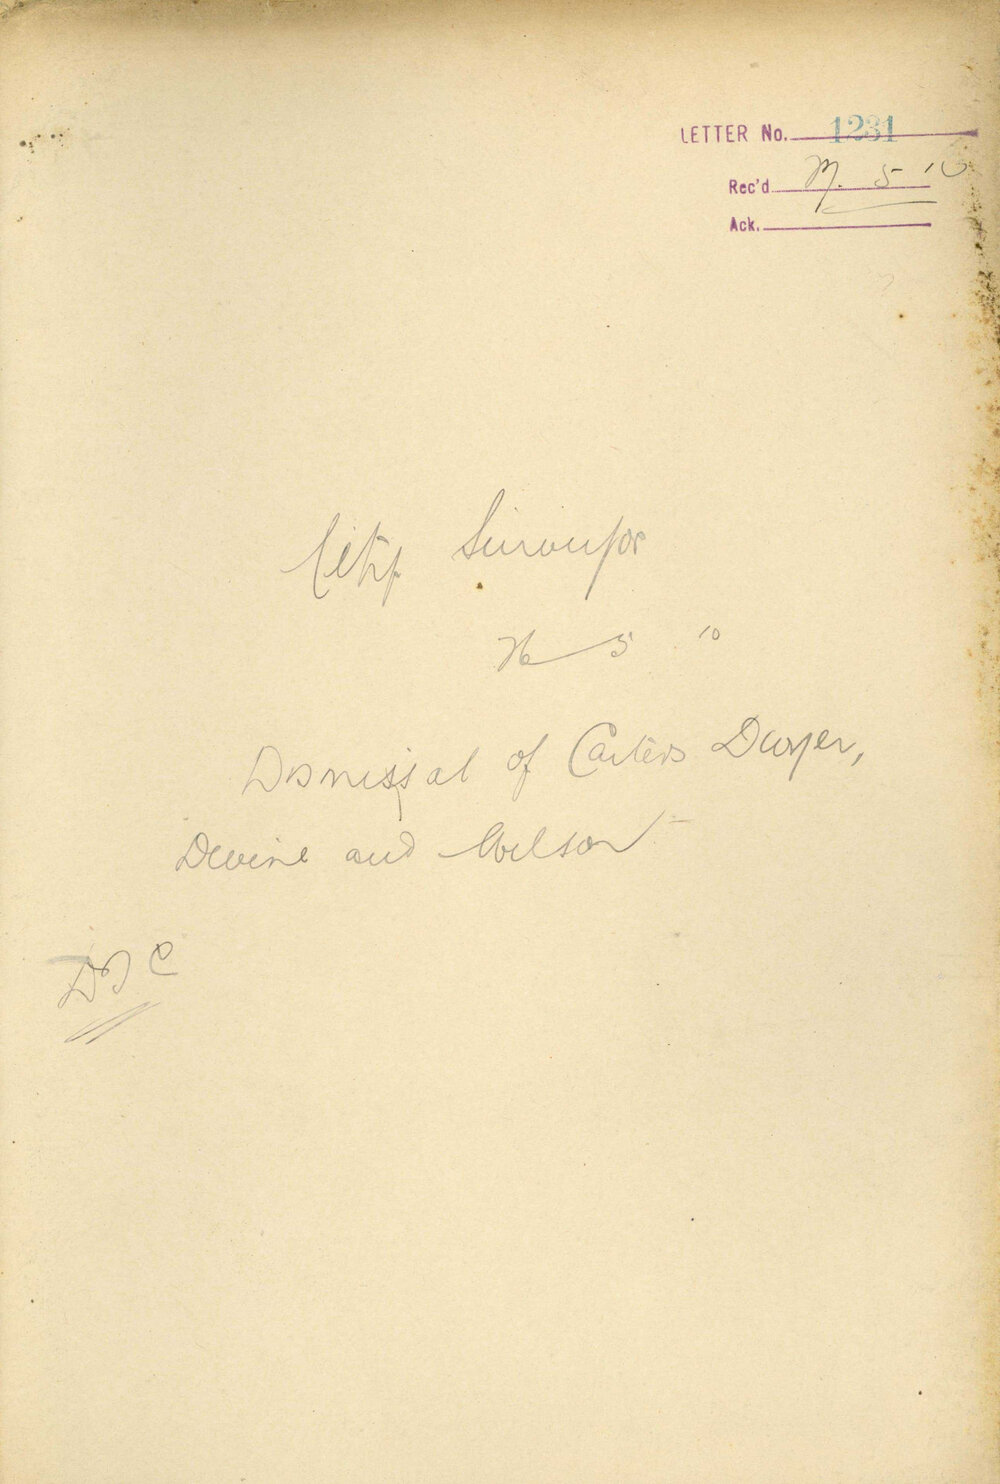 LETTER No. 1231
Rec'd 5 10
Ack.
City Surveyor
5 10
Dismissal of Carters Dwyer,
Devine and Wilson